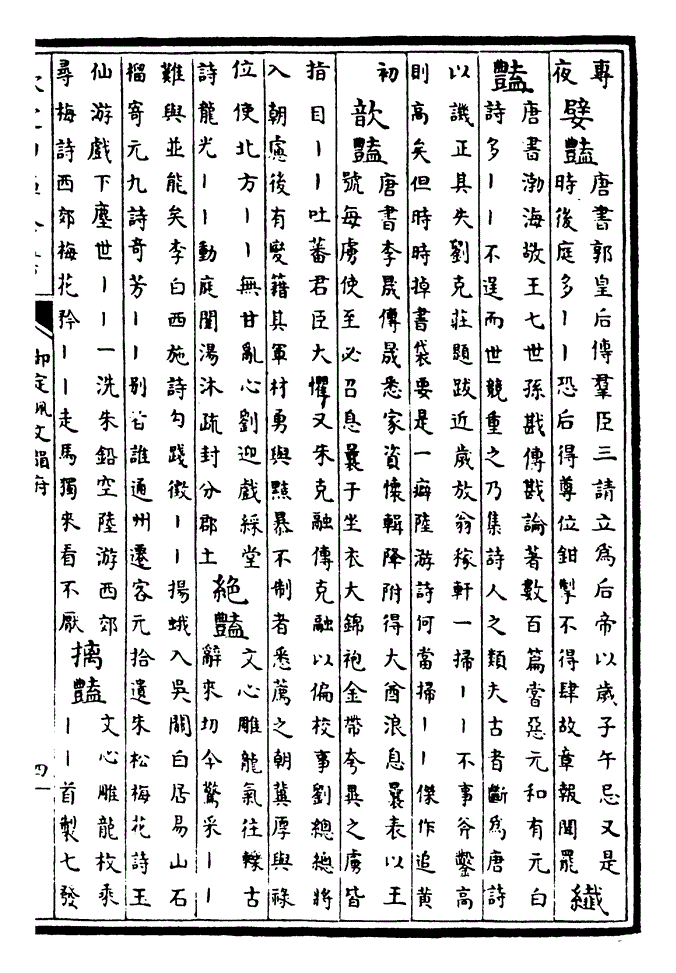 專
夜 嬖豔 唐書郭皇后傳羣臣三請立爲后帝以歲子午忌又是
時後庭多丨丨恐后得尊位鉗掣不得肆故章報聞罷 纖
豔 唐書渤海敬王七世孫戡傳戡論著數百篇嘗惡元和有元白
詩多丨丨不逞而世競重之乃集詩人之類夫古者斷爲唐詩
以譏正其失劉克莊題跋近歲放翁稼軒一掃丨丨不事斧鑿高
則高矣但時時掉書袋要是一癖陸游詩何當掃丨丨傑作追黃
初 歆豔 唐書李晟傳晟悉家資懷輯降附得大酋浪息曩表以王
號每虜使至必召息曩于坐衣大錦袍金帶夸異之虜皆
指目丨丨吐蕃君臣大懼又朱克融傳克融以偏校事劉總總將
入朝慮後有變籍其軍材勇與黠暴不制者悉薦之朝冀厚與祿
位使北方丨丨無甘亂心劉迎戲綵堂
詩龍光丨丨動庭闈湯沐疏封分郡土 絶豔 文心雕龍氣往轢古
辭來切今驚采丨丨
難與並能矣李白西施詩勾踐徵丨丨揚蛾入吳關白居易山石
榴寄元九詩奇芳丨丨别者誰通州遷客元拾遺朱松梅花詩玉
仙游戲下塵世丨丨一洗朱鉛空陸游西郊
尋梅詩西郊梅花矜丨丨走馬獨來看不厭 摛豔 文心雕龍枚乘
丨丨首製七發
御定佩文韻府
四